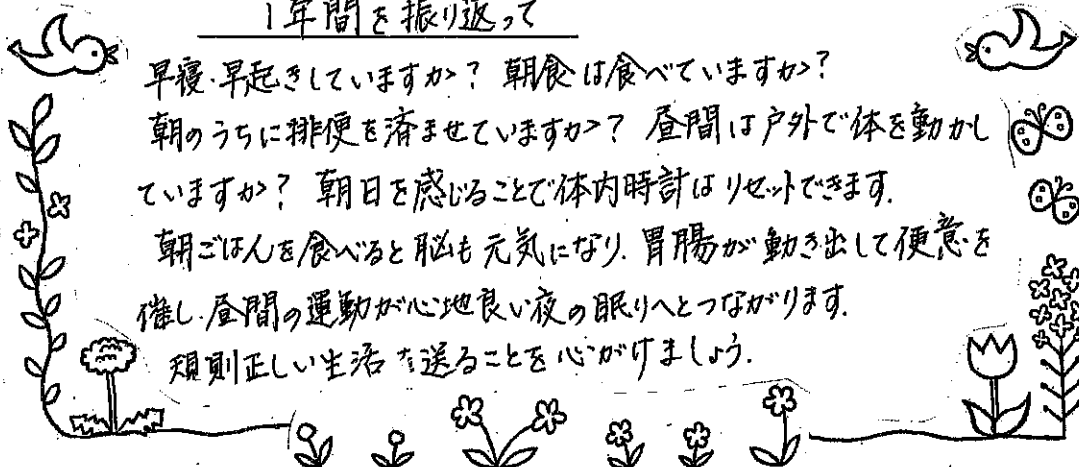 1年間を振り返って
早寝・早起きしていますか？ 朝食は食べていますか？
朝のうちに排便を済ませていますか？ 昼間は戸外で体を動かし
ていますか？ 朝日を感じることで体内時計はリセットできます.
朝ごはんを食べると脳も元気になり、胃腸が動き出して便意を
催し、昼間の運動が心地良い夜の眠りへとつながります.
規則正しい生活を送ることを心がけましょう.